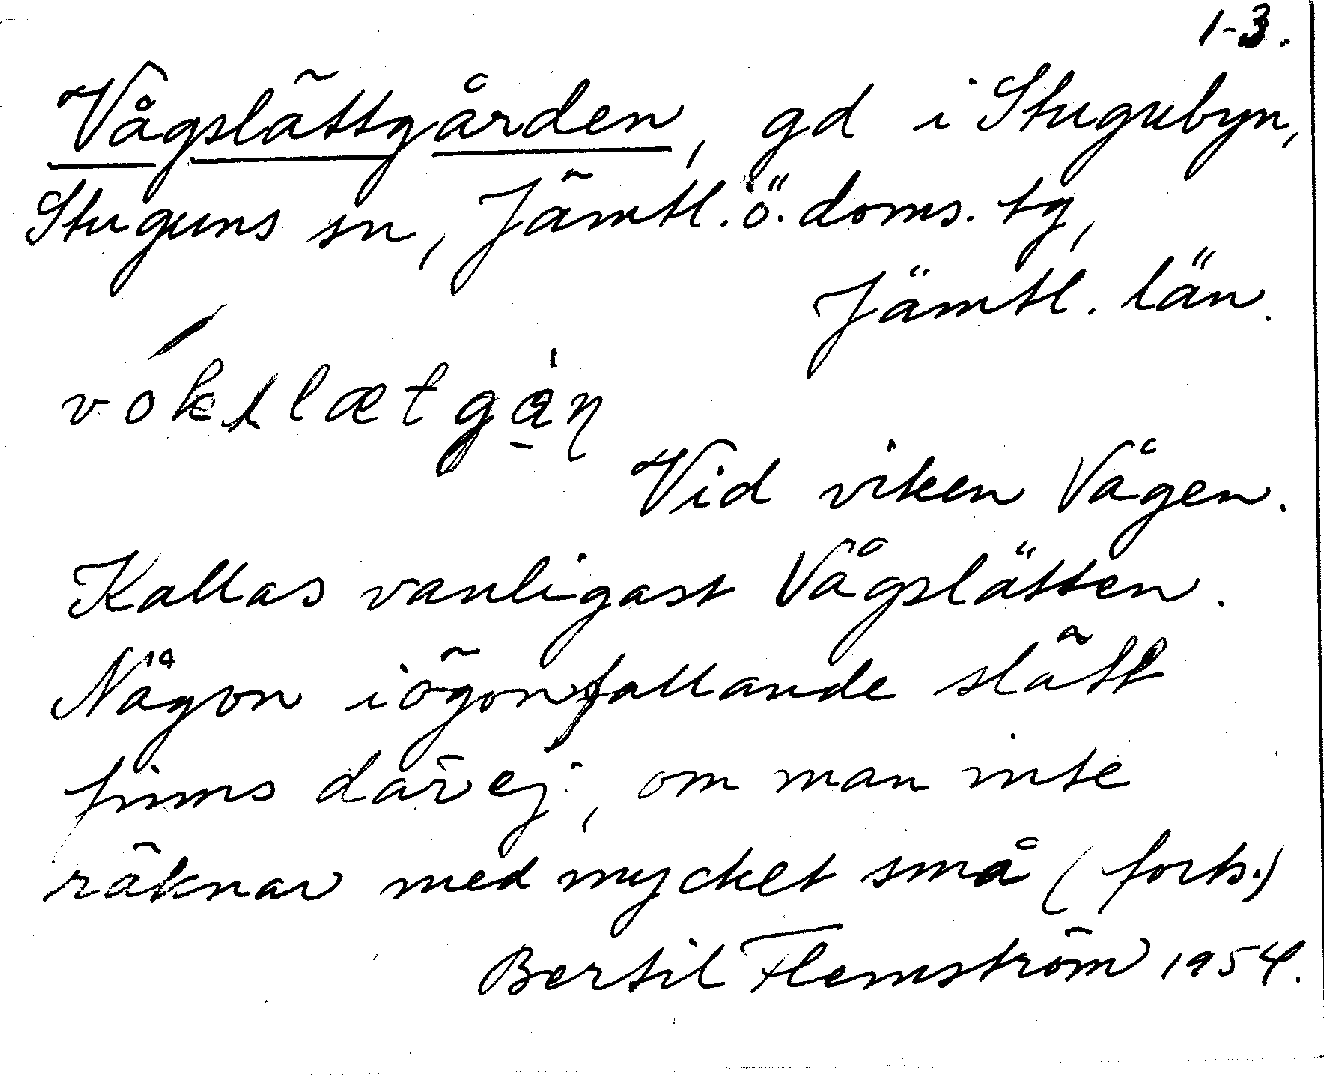 1-3.
Vågslättgården, gd i Stugubyn,
Stuguns sn, Jämtl. ö. doms. tg,
Jämtl. län.
Vid viken Vågen.
Kallas vanligast Vågslätten.
Någon iögonfallande slätt
finns där ej, om man inte
räknar med mycket små (forts.)
Bertil Flemström 1954.